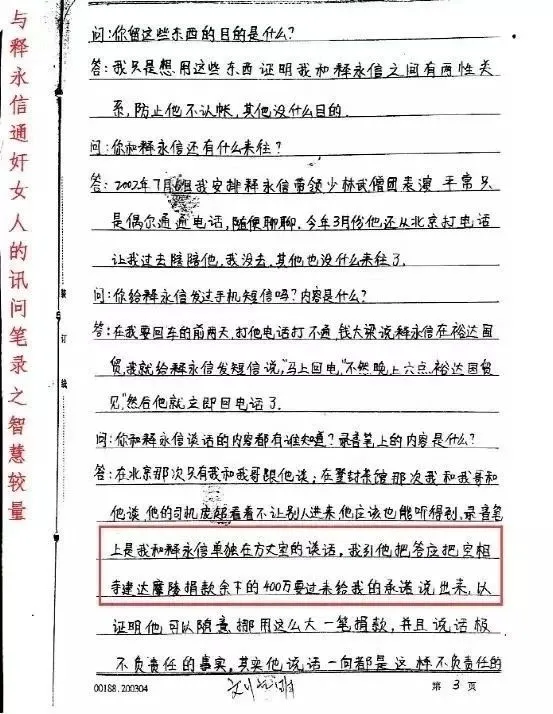 与释永信通奸女人的讯问笔录之智慧较量
问:你留这些东西的目的是什么?
答:我只是想用这些东西证明我和释永信之间有两性关
系,防止他不认帐,其他没什么目的.
问:你和释永信还有什么来往?
答:2002年7月 我安排释永信带领少林武僧团表演 平常只
是偶尔通通电话,随便聊聊.今年3月份他还从北京打电话
让我过去陪陪他,我没去.其他也没什么来往了.
问:你给释永信发过手机短信吗?内容是什么?
答:在我要回车的前两天,打他电话打不通,钱大梁说释永信在裕达国
贸,我就给释永信发短信说,"马上回电,"不然晚上六点.裕达国贸
见,"然后他就立即回电话了.
问:你和释永信谈话的内容都有谁知道?录音笔上的内容是什么?
答:在北京那次只有我和我哥跟他谈;在登封 馆那次我和我哥和
他谈,他的司机 看着不让别人进来他应该也能听得到.录音笔
上是我和释永信单独在方丈室的谈话,我引他把答应把空相
寺建达摩陵捐款余下的400万要过来给我的承诺说出来,以
证明他可以随意挪用这么大一笔捐款,并且说话极
不负责任的事实,其实他说话一向都是这样不负责任的
装 订 线
00188.200304
第 3 页